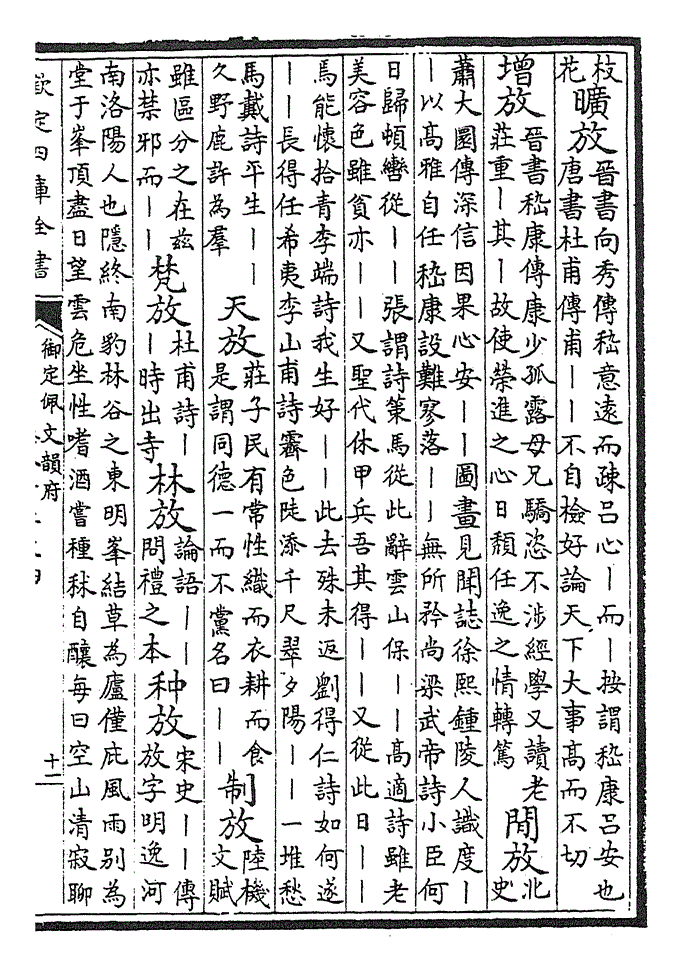 枝花曠放晉書向秀傳嵇意遠而疎呂心丨而丨按謂嵇康呂安也
唐書杜甫傳甫丨丨不自檢好論天下大事高而不切
增放晉書嵇康傳康少孤露母兄驕恣不涉經學又讀老
莊重丨其丨故使榮進之心日頹任逸之情轉篤閒放北史
蕭大圜傳深信因果心安丨丨圖畫見聞誌徐熙鍾陵人識度丨
丨以高雅自任嵇康設難寥落丨丨無所矜尚梁武帝詩小臣何
日歸頓轡從丨丨張謂詩策馬從此辭雲山保丨丨高適詩雖老
美容色雖貧亦丨丨又聖代休甲兵吾其得丨丨又從此日丨丨
馬能懷拾青李端詩我生好丨丨此去殊未返劉得仁詩如何遂
丨丨長得任希夷李山甫詩霽色陡添千尺翠夕陽丨丨一堆愁
馬戴詩平生丨丨久野鹿許為羣天放莊子民有常性織而衣耕而食
是謂同德一而不黨名曰丨丨制放陸機文賦
雖區分之在茲亦禁邪而丨丨梵放杜甫詩丨丨時出寺林放論語丨丨問禮之本种放宋史丨丨傳放字明逸河
南洛陽人也隱終南豹林谷之東明峯結草為廬僅庇風雨别為
堂于峯頂盡日望雲危坐性嗜酒嘗種秫自釀每曰空山清寂聊
欽定四庫全書
御定佩文韻府
十二